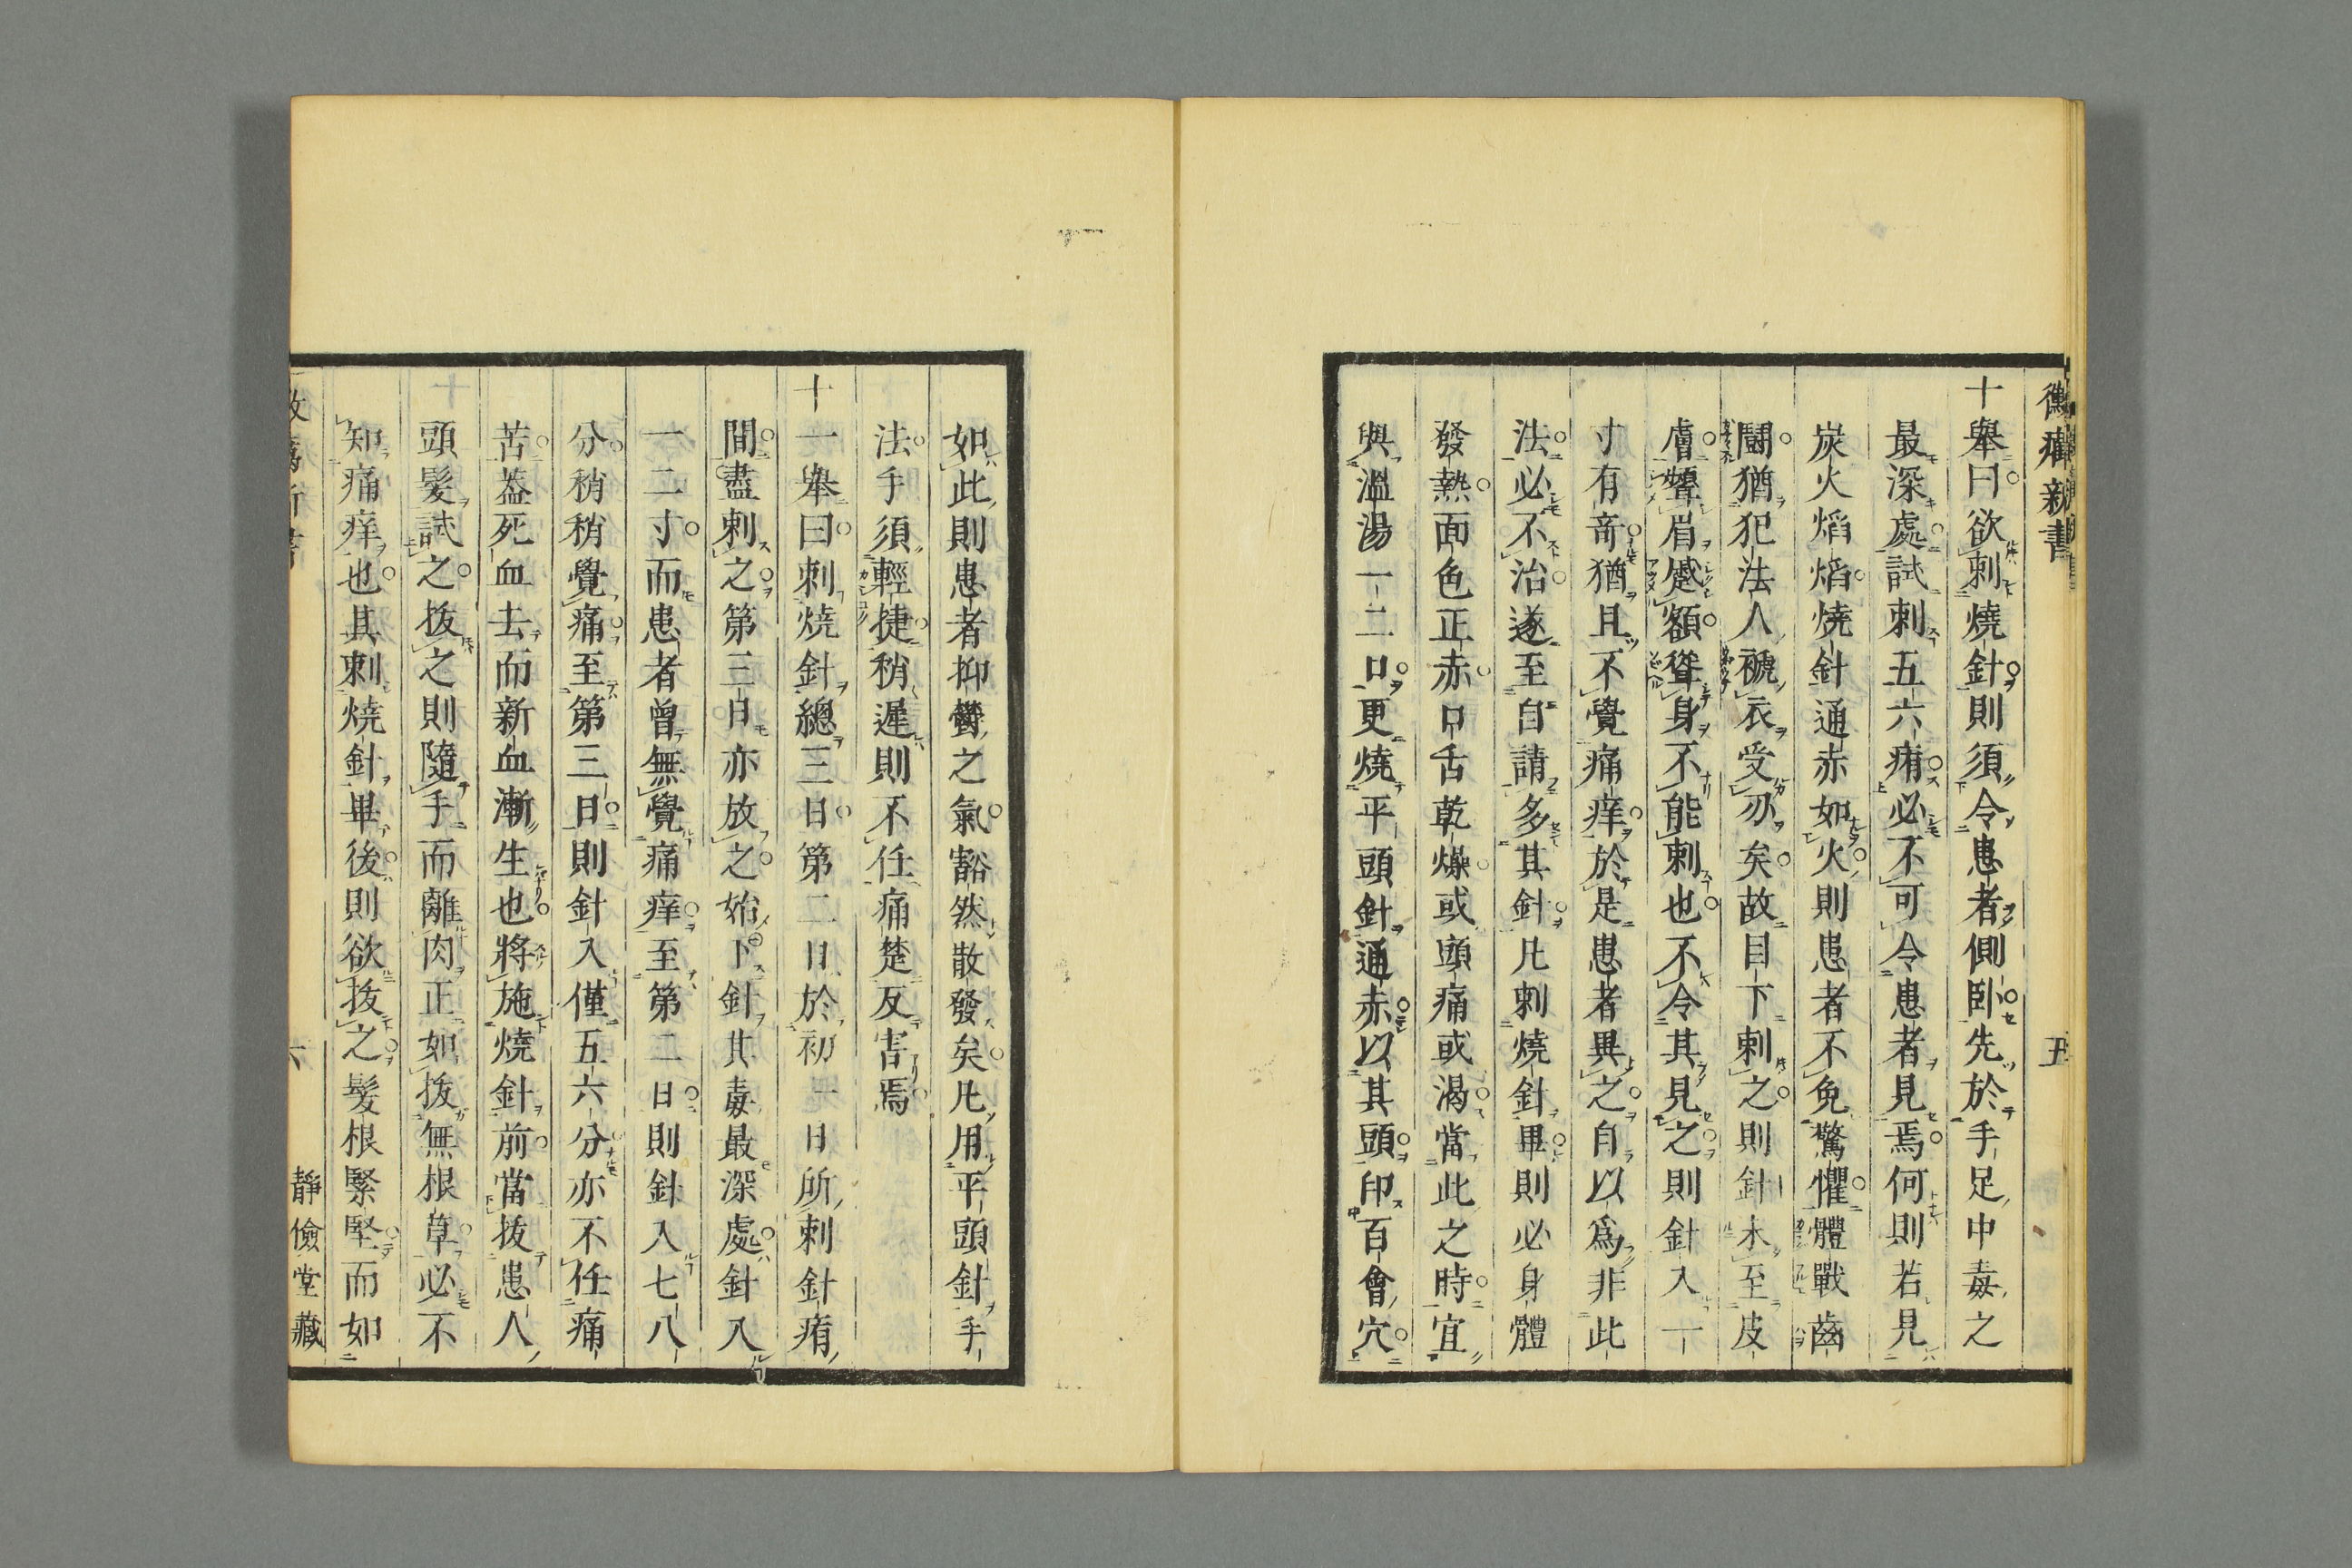 癘新書
五
十舉曰欲刺燒針則須令患者側臥先於手足中毒之
最深處試刺五六痏必不可令患者見焉何則若見
炭火焰焰燒針通赤如火則患者不免驚懼體戰齒
鬪猶犯法人褫衣受刅矣故目下刺之則針未至皮
膚顰眉蹙額聳身不能刺也不令其見之則針入一
寸有奇猶且不覺痛痒於是患者異之自以爲非此
法必不治遂至自請多其針凡刺燒針畢則必身體
發熱面色正赤口舌乾燥或頭痛或渴當此之時宜
與溫湯一二口更燒平頭針通赤以其頭印百會穴
如此則患者抑鬱之氣豁然散發矣凡用平頭針手
法手須輕捷稍遲則不任痛楚反害焉
十一舉曰刺燒針總三日第二日於初一日所刺針痏
間盡刺之第三日亦放之始下針其毒最深處針入
一二寸而患者曾無覺痛痒至第二日則針入七八
分稍稍覺痛至第三日則針入僅五六分亦不任痛
苦葢死血去而新血漸生也將施燒針前當拔患人
頭髮試之拔之則隨手而離肉正如拔無根草必不
知痛痒也其刺燒針畢後則欲拔之髮根緊堅而如
癘新書
六
靜儉堂藏